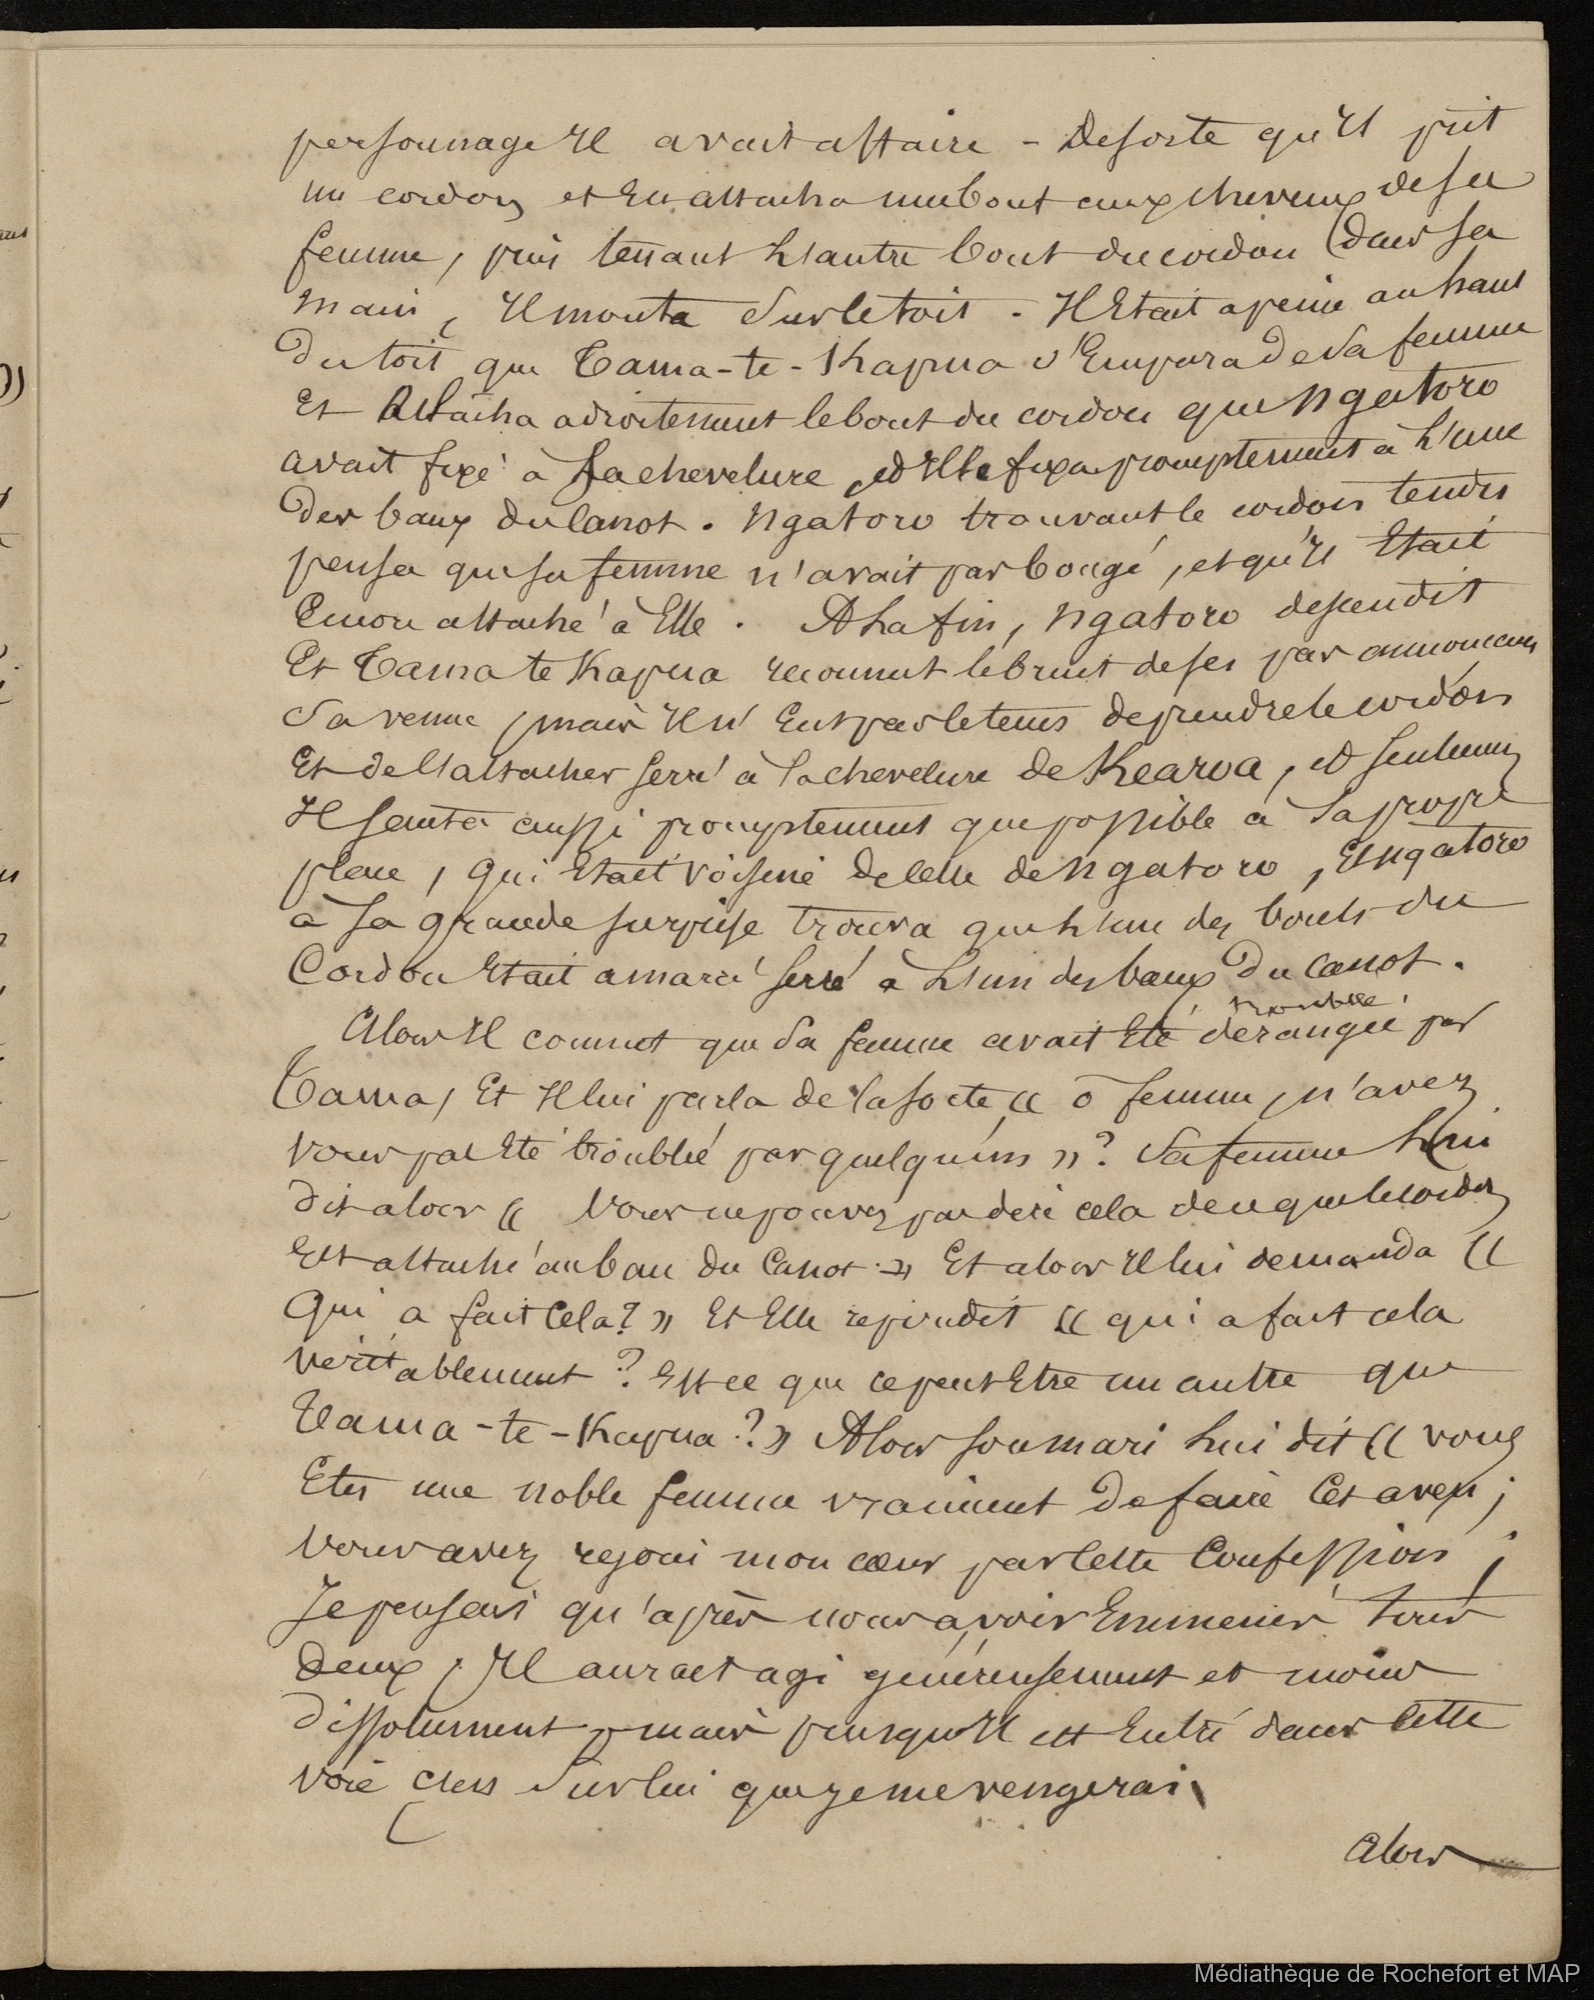 personnage Il avait affaire - Desorte qu'Il prit
un cordon et En attacha un bout aux cheveux de sa
femme, puis tenant L'autre bout du cordon dans sa
main, Il monta Sur le toit. Il Etait a peine au haut
Du toit que Tama-te-Kapua s'Empara de Sa femme
Et Attacha adroitement le bout du cordon que Ngatoro
avait fixé à La chevelure, et Il le fixa promptement à L'une
des baux du Canot. Ngatoro trouvant le cordon tendu
pensa que sa femme n'avait pas bougé, et qu'Il Etait
Encore attaché à Elle. A La fin, Ngatoro descendit
Et Tama te Kapua reconnut le bruit de ses pas annoncant
Sa venue, mais Il n'Eut pas le tems de prendre le cordon
Et de L'attacher serré à La chevelure de Kearoa, et seulement
Il sauta aussi promptement que possible à Sa propre
place, qui Etait voisine de celle de Ngatoro, Et Ngatoro
à Sa grande surprise trouva que L'une des bouts du
Cordon Etait amarré serré à L'un des baux Du Canot.
Alors Il connut que Sa femme avait Eté derangée par
trouble
Tama, Et Il lui parla de la sorte « ô femme, n'avez
vous pas Eté troublé par quelqu'un »? Sa femme Lui
dit alors « Vous ne pouvez pas dire cela de ce que le cordon
Est attaché au bau du Canot » Et alors Il lui demanda «
Qui a fait Cela? » Et Elle repondit « qui a fait cela
veritablement? Est ce que ce peut Etre un autre que
Tama-te-Kapua? » Alors son mari Lui dit « vous
Etes une noble femme vraiment De faire Cet aveu;
Vous avez rejoui mon cœur par Cette Confession;
Je pensais qu'après nous avoir Emmenés tous
Deux, Il aurait agi généreusement et moins
Dissolument, mais puisqu'Il est Entré dans Cette
Voie C'est Sur lui que je me vengerai
Alors
Médiathèque de Rochefort et MAP